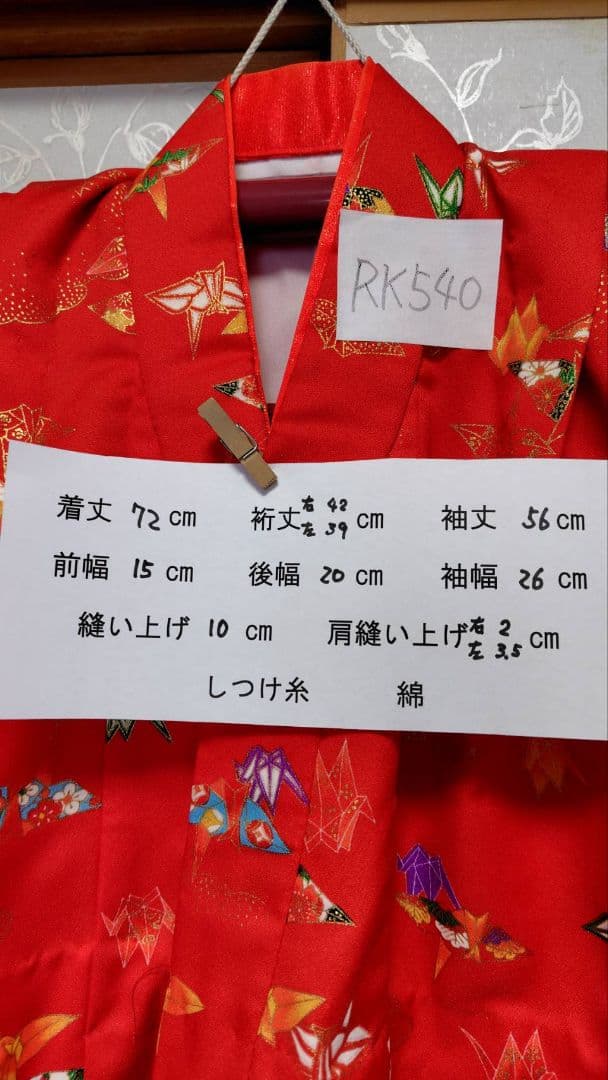 RK540
着丈 72 cm 裄丈 右 42 左 39 cm 袖丈 56 cm
前幅 15 cm 後幅 20 cm 袖幅 26 cm
縫い上げ 10 cm 肩縫い上げ 右 2 左 3.5 cm
しつけ糸 綿